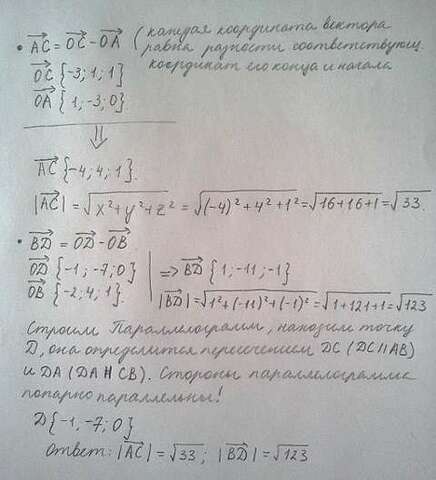 • AC⃗ = OC⃗ - OA⃗ ( каждая координата вектора
равна разности соответствующ.
координат его конца и начала
OC⃗ {-3; 1; 1}
OA⃗ {1; -3; 0}
⇓
AC⃗ {-4; 4; 1}.
|AC⃗| = √(x² + y² + z²) = √((-4)² + 4² + 1²) = √(16+16+1) = √33.
• BD⃗ = OD⃗ - OB⃗.
OD⃗ {-1; -7; 0} | ⇒ BD⃗ {1; -11; -1}
OB⃗ {-2; 4; 1}. | |BD⃗| = √(1² + (-11)² + (-1)²) = √(1+121+1) = √123
Строим Параллелограмм, находим точку
D, она определится пересечением DC (DC || AB)
и DA (DA || CB). Стороны параллелограмма
попарно параллельны!
D {-1; -7; 0}
Ответ: |AC⃗| = √33; |BD⃗| = √123